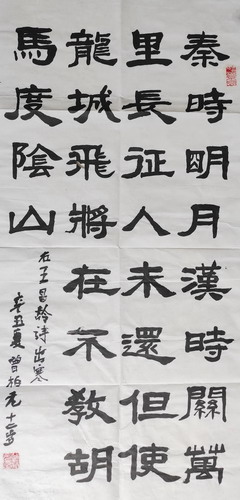 秦時明月漢時關萬
里長征人未還但使
龍城飛將在不教胡
馬度陰山
右王昌齡詩出塞
辛丑夏曾柏